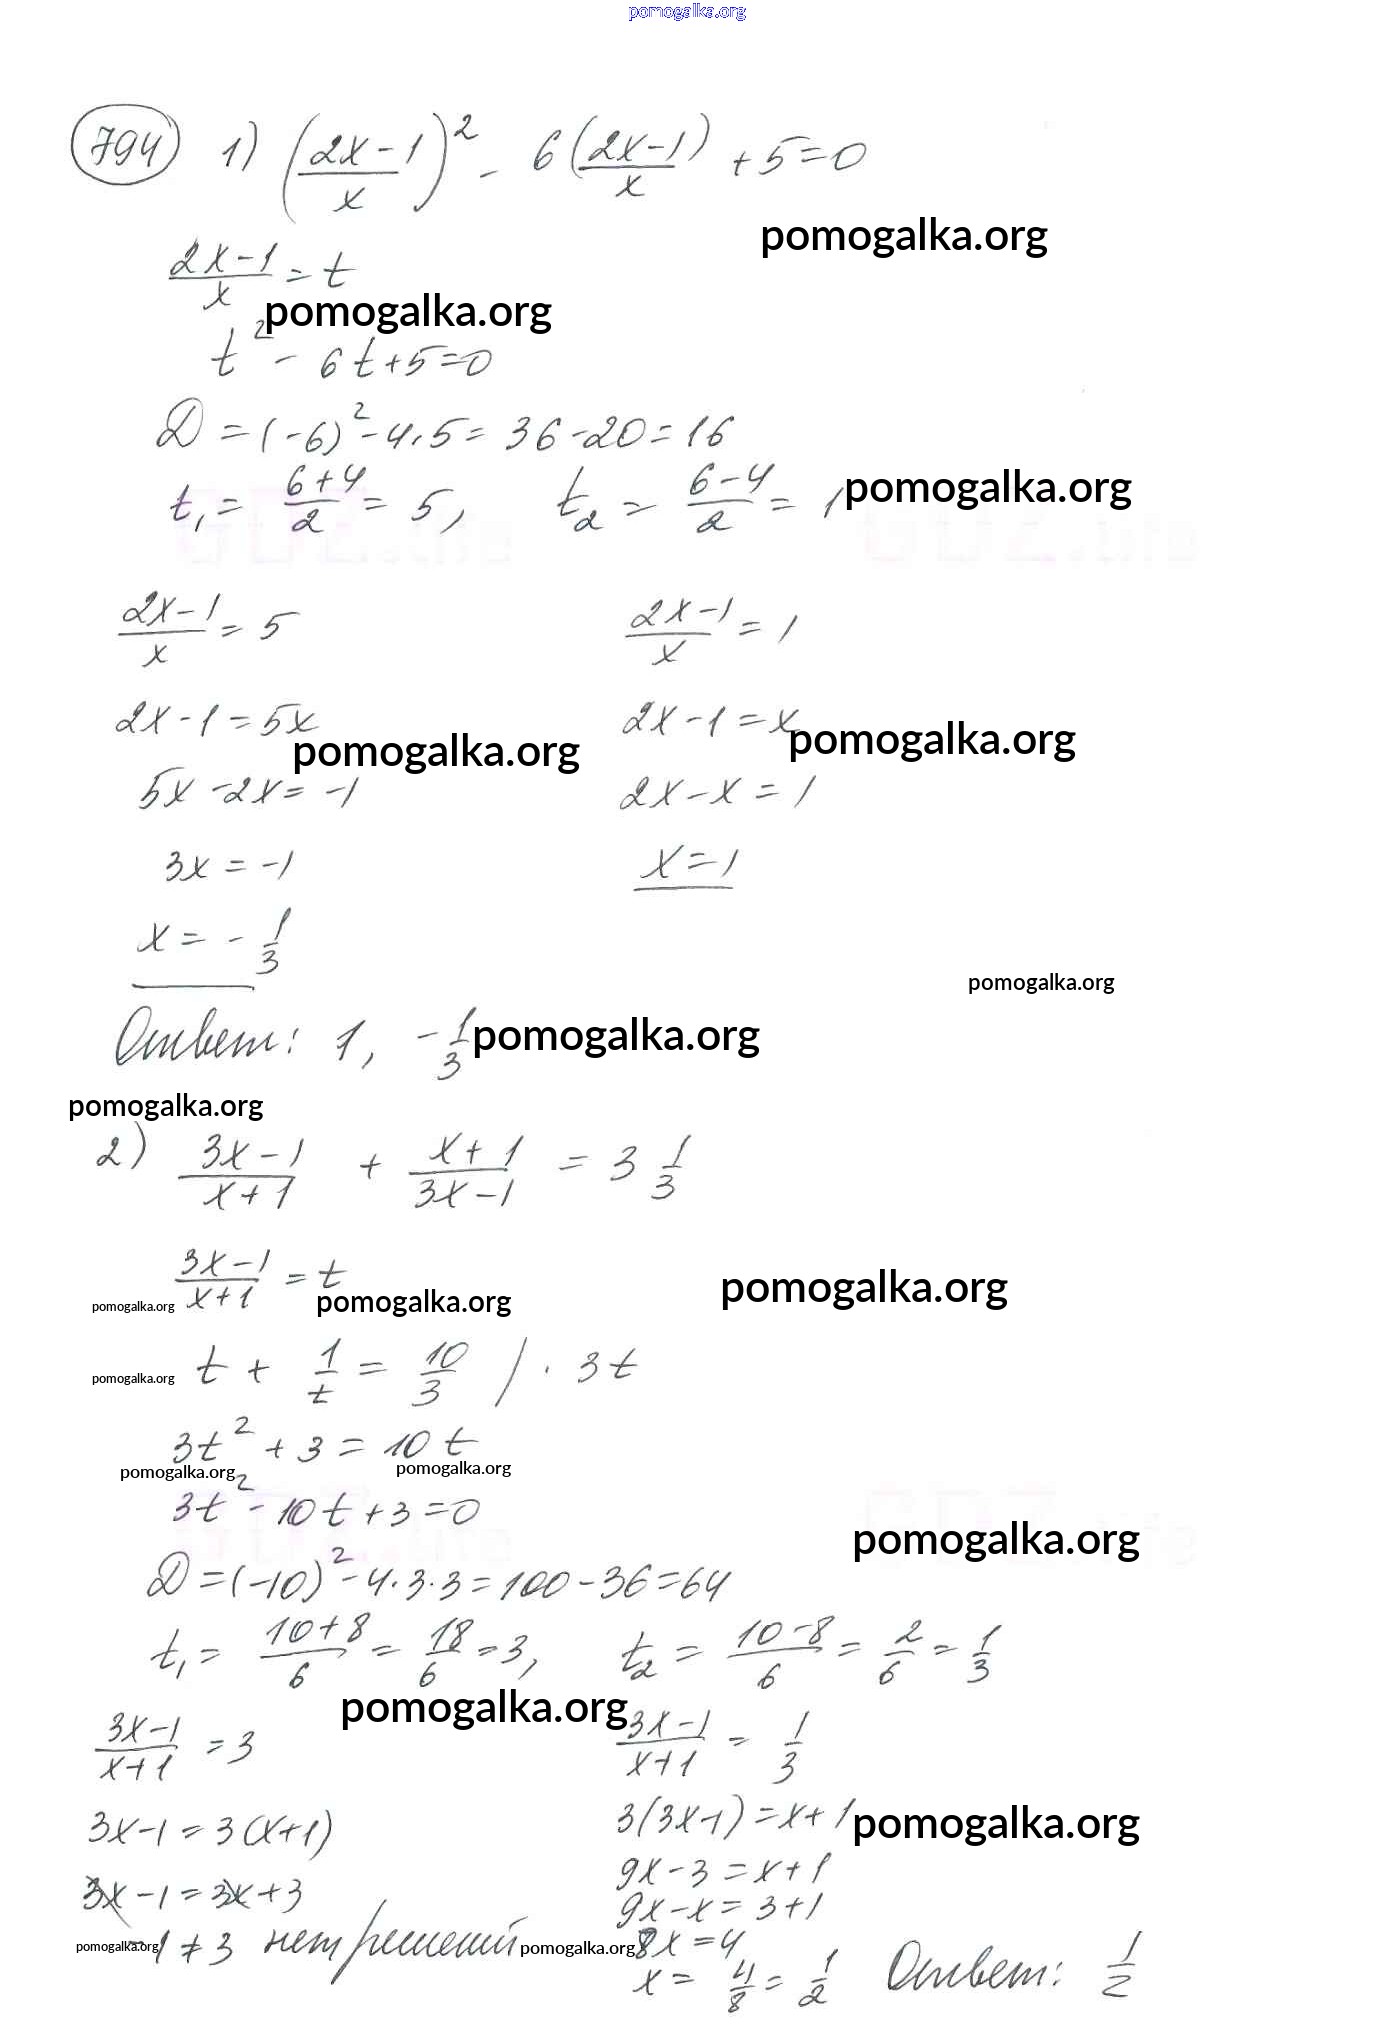 pomogalka.org
794 1) ((2x-1)/x)² - 6((2x-1)/x) + 5=0
pomogalka.org
(2x-1)/x = t
pomogalka.org
t² - 6t+5=0
D = (-6)² - 4·5 = 36-20 = 16
t₁ = (6+4)/2 = 5, t₂ = (6-4)/2 = 1
pomogalka.org
(2x-1)/x = 5 (2x-1)/x = 1
2x-1=5x 2x-1=x
pomogalka.org pomogalka.org
5x-2x=-1 2x-x=1
3x=-1 x=1
x=-1/3
pomogalka.org
Ответ: 1, -1/3
pomogalka.org
pomogalka.org
2) (3x-1)/(x+1) + (x+1)/(3x-1) = 3 1/3
(3x-1)/(x+1) = t
pomogalka.org pomogalka.org pomogalka.org
t + 1/t = 10/3 / · 3t
pomogalka.org
3t² + 3 = 10t
pomogalka.org pomogalka.org
3t² - 10t + 3 = 0
pomogalka.org
D = (-10)² - 4·3·3 = 100-36 = 64
t₁ = (10+8)/6 = 18/6 = 3, t₂ = (10-8)/6 = 2/6 = 1/3
pomogalka.org
(3x-1)/(x+1) = 3 (3x-1)/(x+1) = 1/3
3x-1=3(x+1) 3(3x-1)=x+1
pomogalka.org
3x-1=3x+3 9x-3=x+1
9x-x=3+1
-1≠3 нет решений 8x=4
pomogalka.org pomogalka.org
x = 4/8 = 1/2 Ответ: 1/2